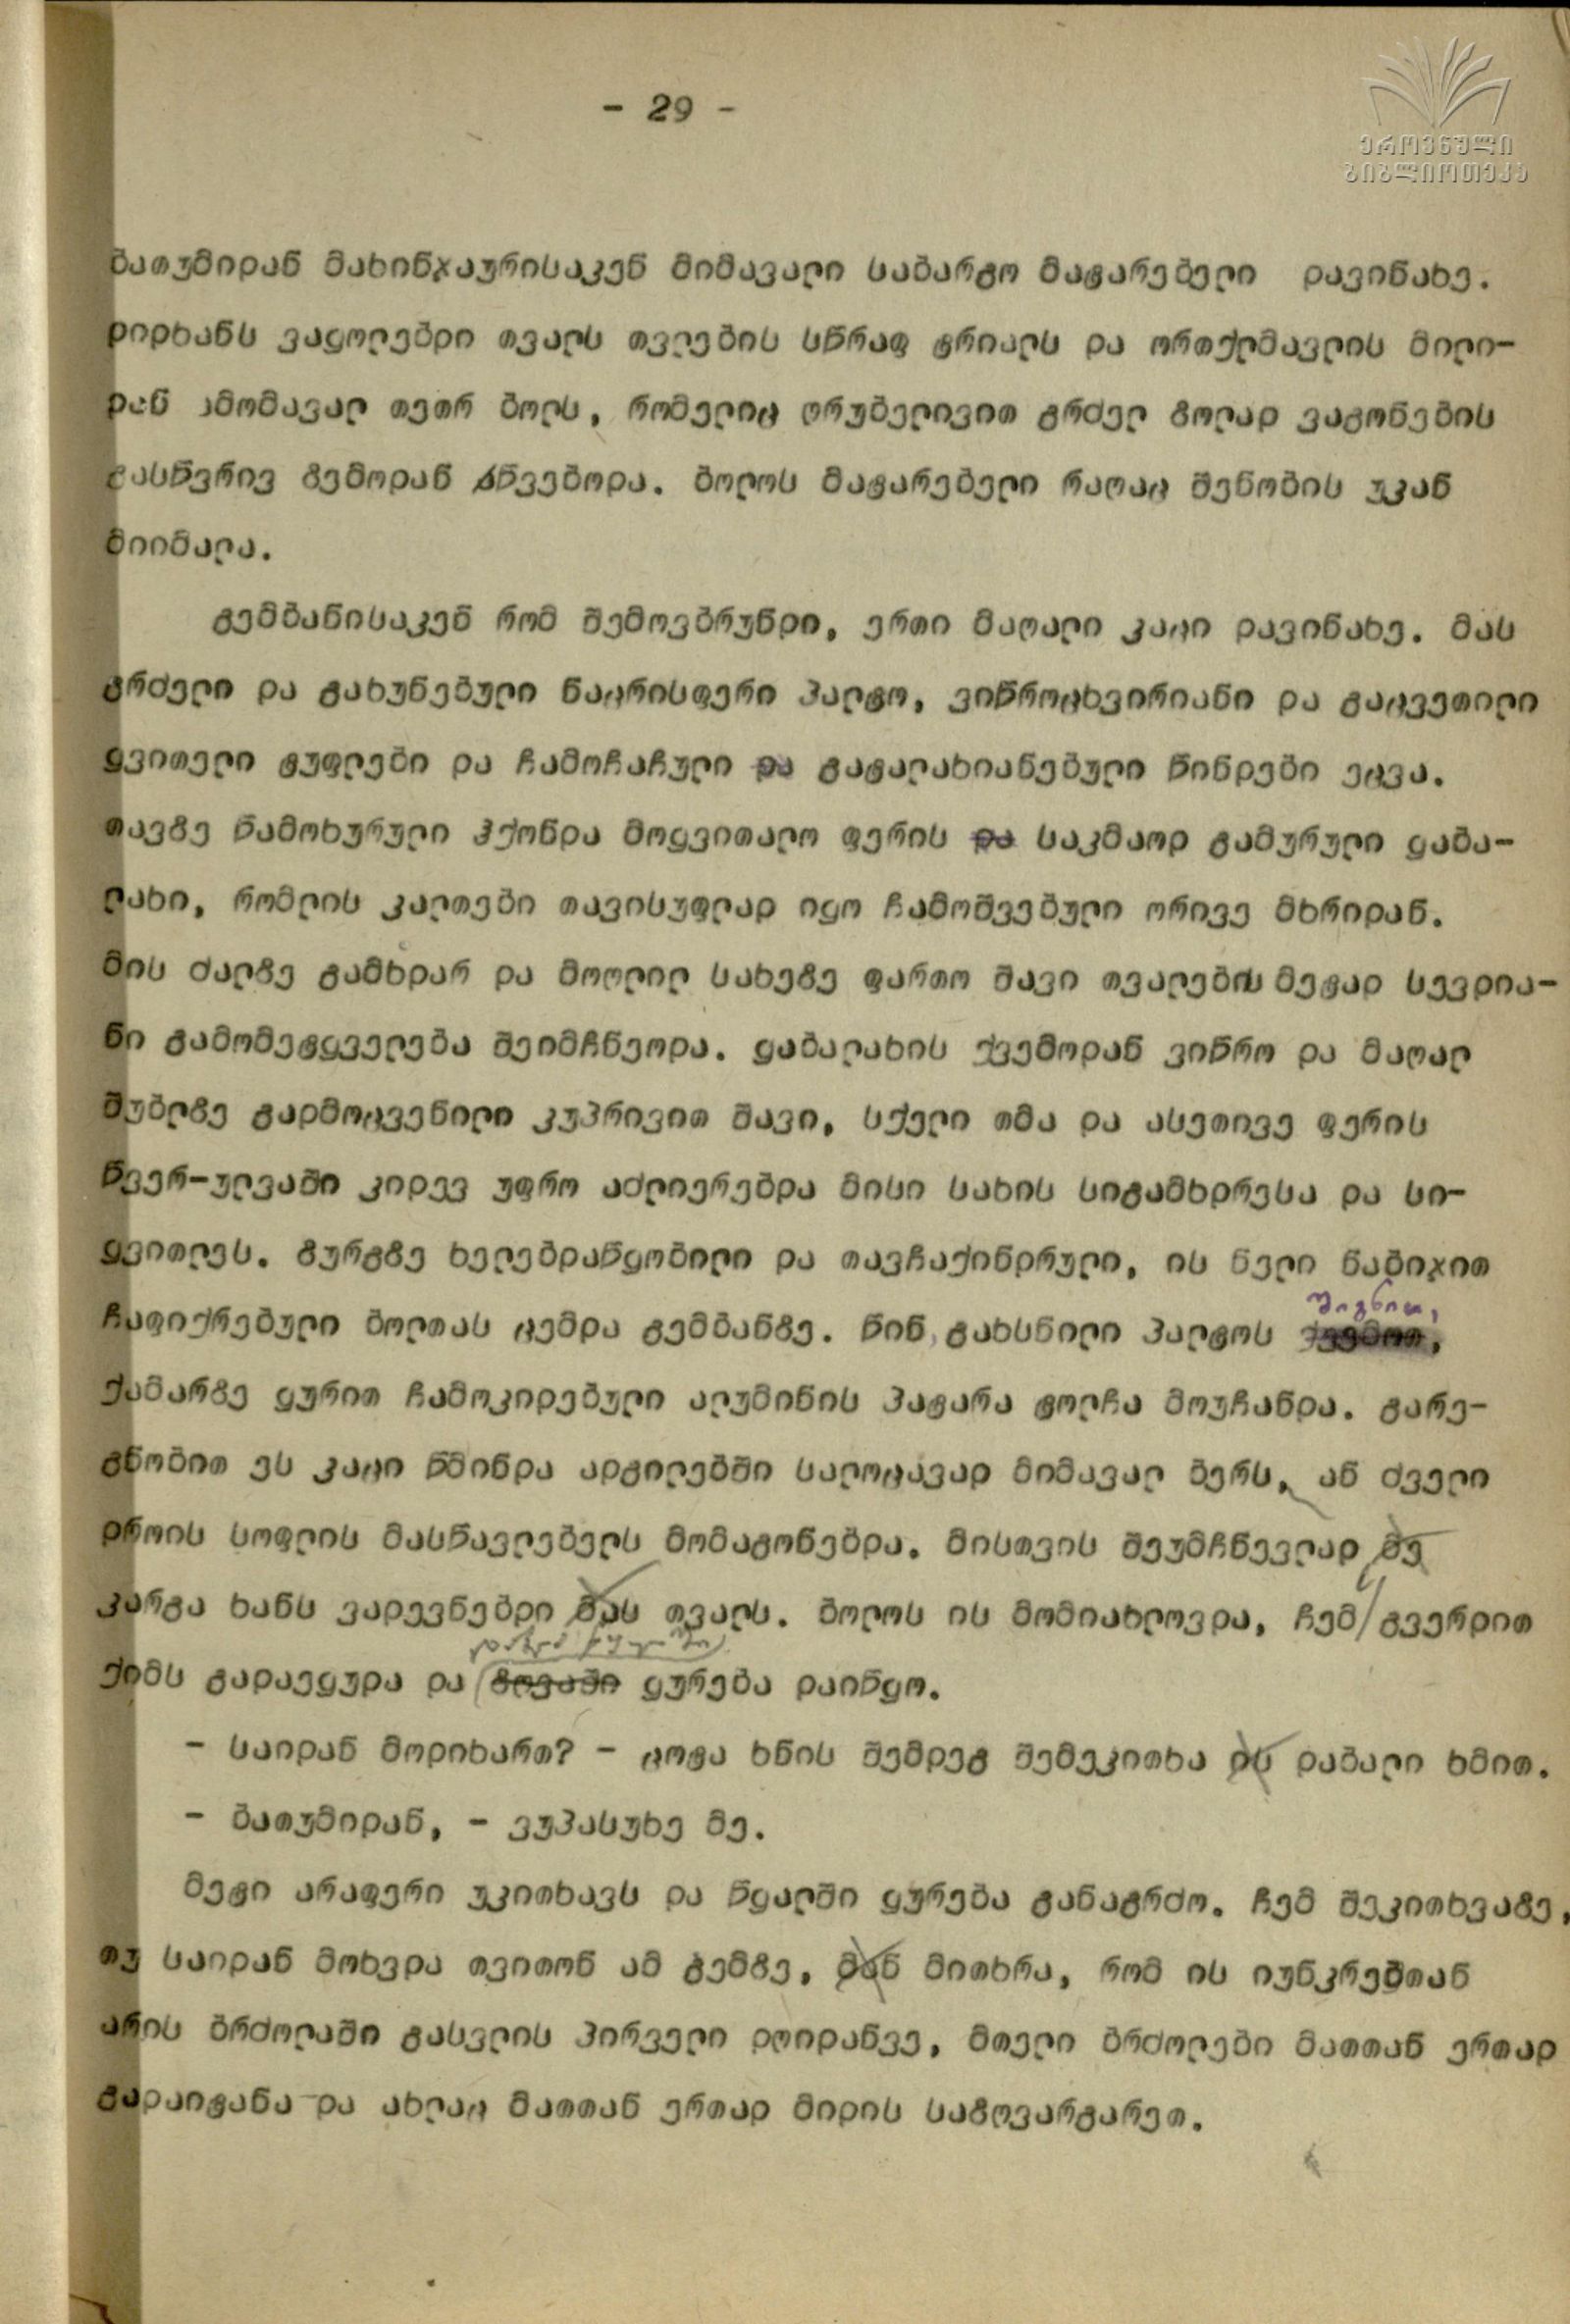 - 29 -
ეროვნული
ბიბლიოთეკა
ბათუმიდან მახინჯაურისაკენ მიმავალი საბარგო მატარებელი დავინახე.
დიდხანს ვაყოლებდი თვალს თვლების სწრაფ ტრიალს და ორთქლმავლის მილი-
დან ამომავალ თეთრ ბოლს, რომელიც ღრუბელივით გრძელ ზოლად ვაგონების
გასწვრივ ზემოდან აწვებოდა. ბოლოს მატარებელი რაღაც შენობის უკან
მიიმალა.
გემბანისაკენ რომ შემოვბრუნდი, ერთი მაღალი კაცი დავინახე. მას
გრძელი და გახუნებული ნაცრისფერი პალტო, ვიწროცხვირიანი და გაცვეთილი
ყვითელი ტუფლები და ჩამოჩაჩული და გატალახიანებული წინდები ეცვა.
თავზე წამოხურული ჰქონდა მოყვითალო ფერის და საკმაოდ გამურული ყაბა-
ლახი, რომლის კალთები თავისუფლად იყო ჩამოშვებული ორივე მხრიდან.
მის ძალზე გამხდარ და მოღლილ სახეზე ფართო შავი თვალების მეტად სევდია-
ნი გამომეტყველება შეიმჩნეოდა. ყაბალახის ქვემოდან ვიწრო და მაღალ
შუბლზე გადმოცვენილი კუპრივით შავი, სქელი თმა და ასეთივე ფერის
წვერ-ულვაში კიდევ უფრო აძლიერებდა მისი სახის სიგამხდრესა და სი-
ყვითლეს. ზურგზე ხელებდაწყობილი და თავჩაქინდრული, ის ნელი ნაბიჯით
შიგნით,
ჩაფიქრებული ბოლთას ცემდა გემბანზე. წინ, გახსნილი პალტოს ქვემოთ,
ქამარზე ყურით ჩამოკიდებული ალუმინის პატარა ტოლჩა მოუჩანდა. გარე-
გნობით ეს კაცი წმინდა ადგილებში სალოცავად მიმავალ ბერს, ან ძველი
დროის სოფლის მასწავლებელს მომაგონებდა. მისთვის შეუმჩნევლად მე
კარგა ხანს ვადევნებდი მას თვალს. ბოლოს ის მომიახლოვდა, ჩემ გვერდით
ქიმს გადაეყუდა და ზღვაში ყურება დაიწყო.
- საიდან მოდიხართ? - ცოტა ხნის შემდეგ შემეკითხა ის დაბალი ხმით.
- ბათუმიდან, - ვუპასუხე მე.
მეტი არაფერი უკითხავს და წყალში ყურება განაგრძო. ჩემ შეკითხვაზე,
თუ საიდან მოხვდა თვითონ ამ გემზე, მან მითხრა, რომ ის იუნკრებთან
არის ბრძოლაში გასვლის პირველი დღიდანვე, მთელი ბრძოლები მათთან ერთად
გადაიტანა და ახლაც მათთან ერთად მიდის საზღვარგარეთ.